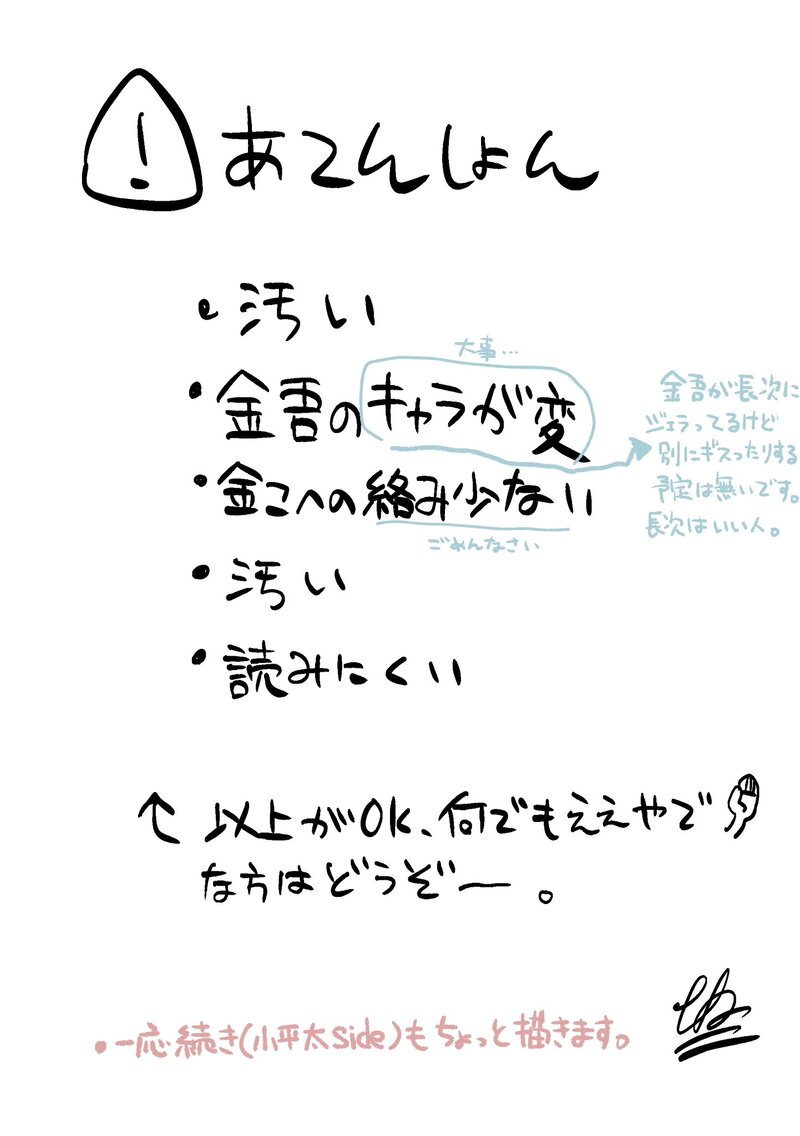 ! あてんしょん
・汚い
大事…
・金吾のキャラが変
金吾が長次に
ジェラってるけど
別にギスったりする
予定は無いです。
長次はいい人。
・金こへの絡み少ない
ごめんなさい
・汚い
・読みにくい
↑ 以上がOK、何でもええやで
な方はどうぞー。
・一応続き(小平太side)もちょっと描きます。